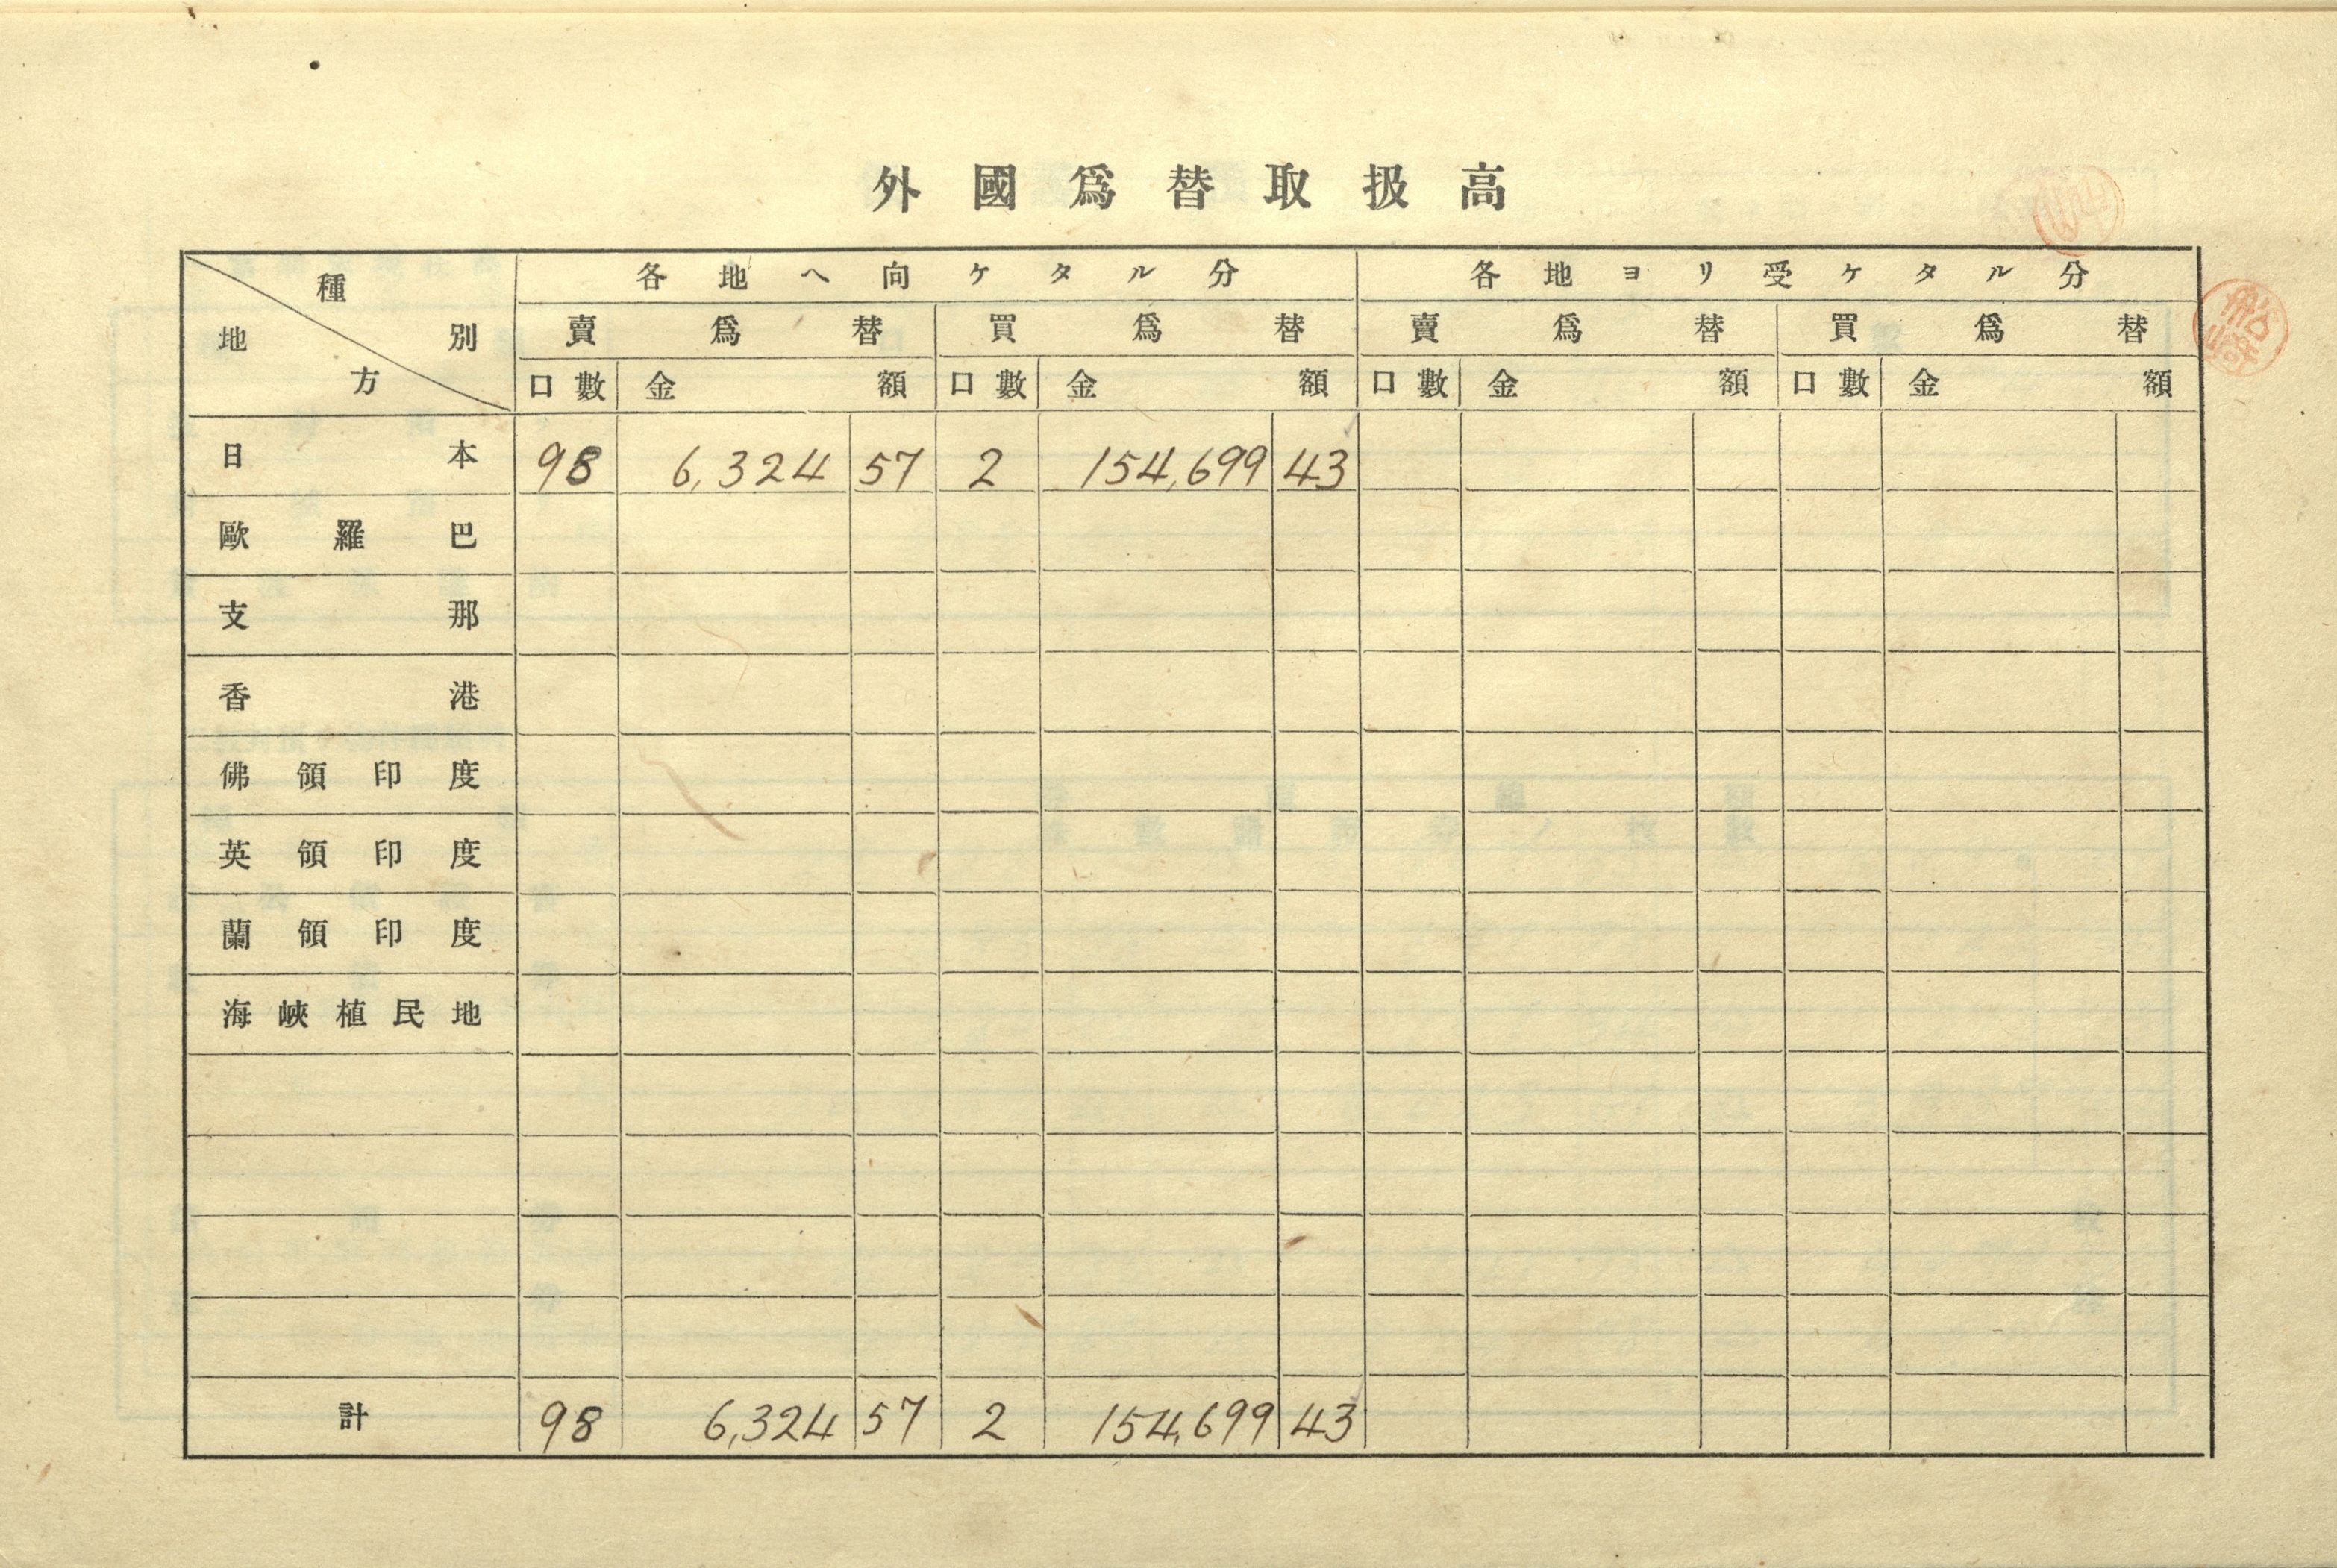 外國爲替取扱高
種別 地方 各地ヘ向ケタル分 各地ヨリ受ケタル分
賣爲替 買爲替 賣爲替 買爲替
口數 金額 口數 金額 口數 金額 口數 金額
日本 98 6,324 57 2 154,699 43
歐羅巴
支那
香港
佛領印度
英領印度
蘭領印度
海峽植民地
計 98 6,324 57 2 154,699 43